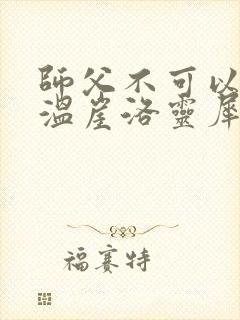 師父不可以
溫崖洛靈犀
福賽特